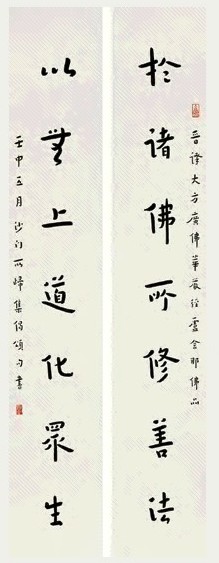 晋译大方广佛华严经卢舍那佛品
於诸佛所修善法
以无上道化众生
壬申五月沙门一归集偈颂句书